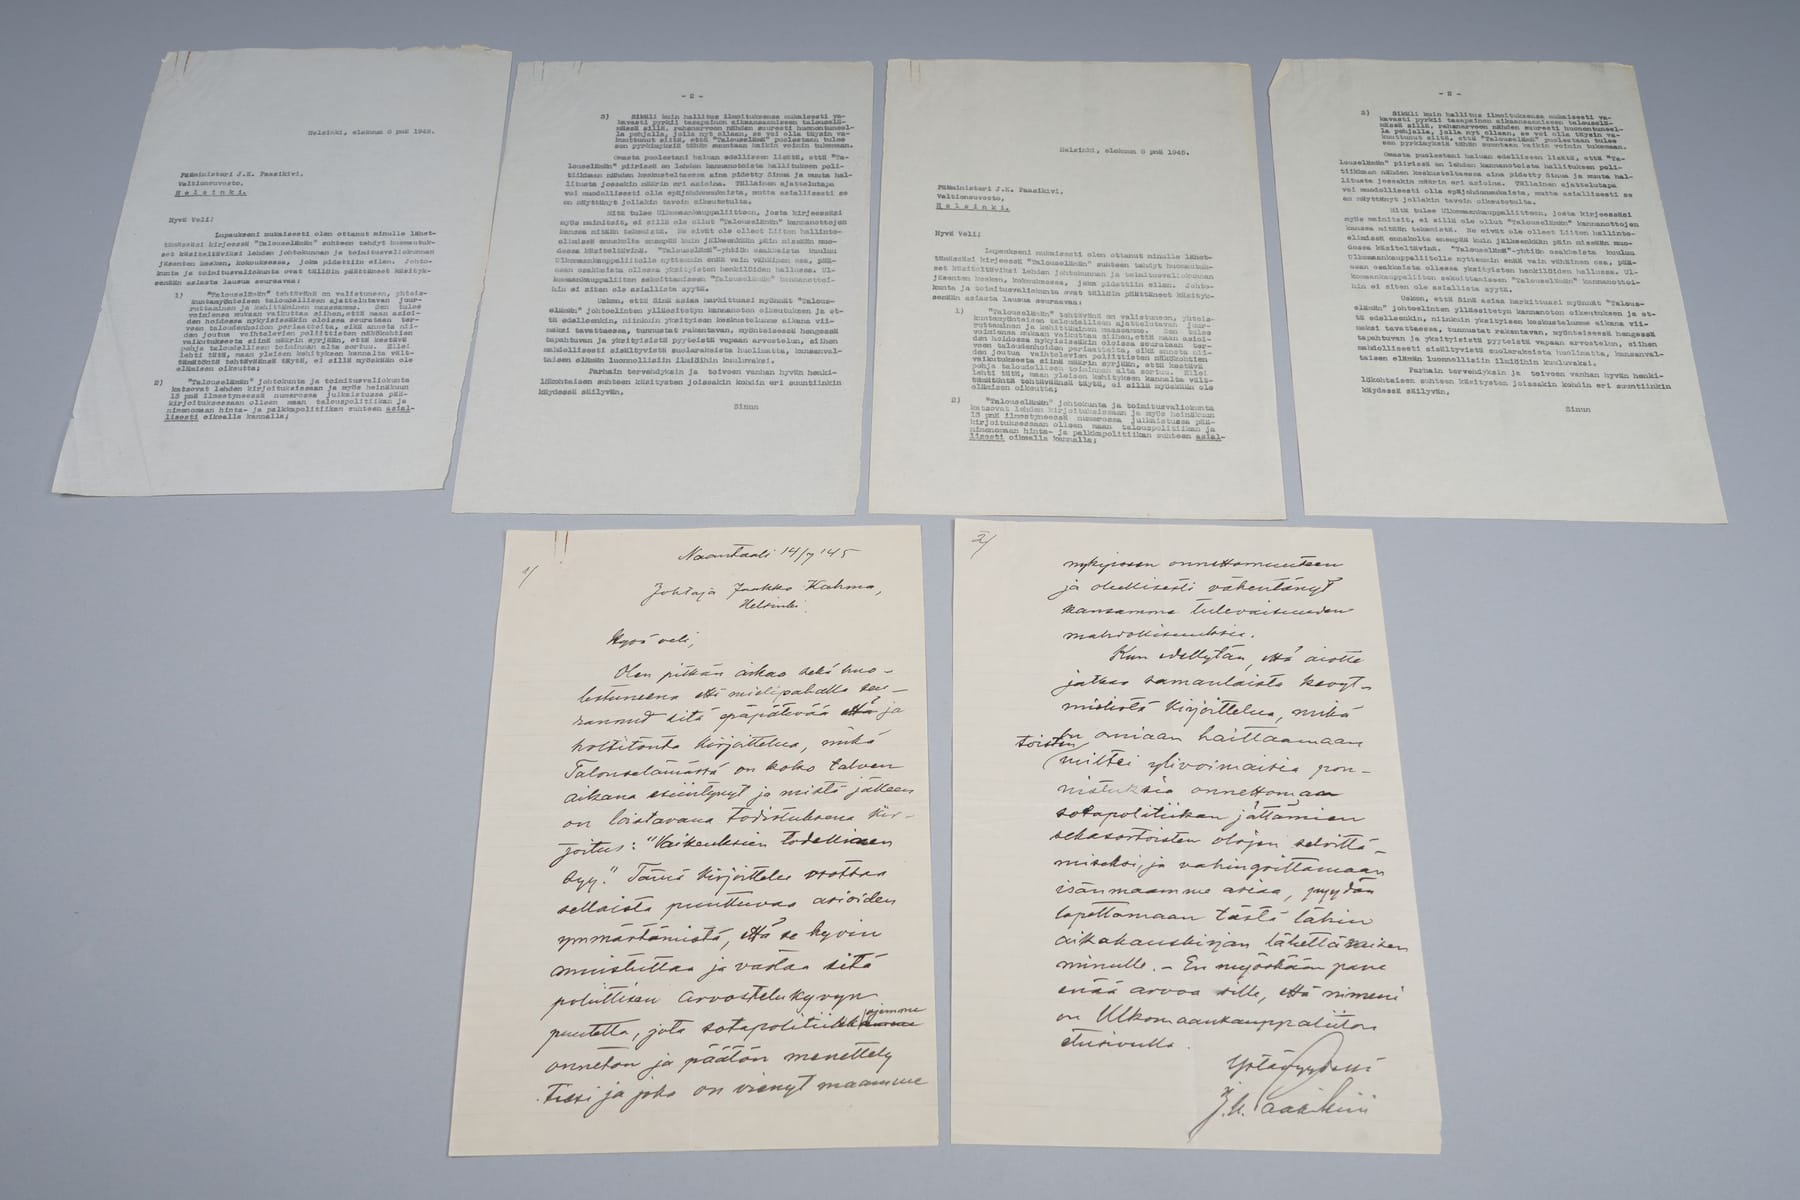 Helsinki, elokuun 8 pnä 1945.
Pääministeri J.K. Paasikivi,
Valtioneuvosto,
Helsinki.
Hyvä Veli!
Lupaukseni mukaisesti olen ottanut minulle lähet-
tämässäsi kirjeessä "Talouselämän" suhteen tehdyt huomautuk-
set käsiteltäviksi lehden johtokunnan ja toimitusvaliokunnan
jäsenten kesken, kokouksessa, joka pidettiin eilen. Johto-
kunta ja toimitusvaliokunta ovat tällöin päättäneet käsityk-
senään asiasta lausua seuraavaa:
1) "Talouselämän" tehtävänä on valistuneen, yhteis-
kuntamyönteisen taloudellisen ajattelutavan juur-
ruttaminen ja kehittäminen maassamme. Sen tulee
voimiensa mukaan vaikuttaa siihen, että maan asioi-
den hoidossa nykyisissäkin oloissa seurataan ter-
veen taloudenhoidon periaatteita, eikä anneta nii-
den joutua vaihtelevien poliittisten näkökohtien
vaikutuksesta siinä määrin syrjään, että kestävä
pohja taloudellisen toiminnan alta sortuu. Ellei
lehti tätä, maan yleisen kehityksen kannalta vält-
tämätöntä tehtäväänsä täytä, ei sillä myöskään ole
elämisen oikeutta;
2) "Talouselämän" johtokunta ja toimitusvaliokunta
katsovat lehden kirjoituksissaan ja myös heinäkuun
13 pnä ilmestyneessä numerossa julkaistussa pää-
kirjoituksessaan olleen maan talouspolitiikan ja
nimenomaan hinta- ja palkkapolitiikan suhteen asial-
lisesti oikealla kannalla;
- 2 -
3) Sikäli kuin hallitus ilmoituksensa mukaisesti va-
kavasti pyrkii tasapainon aikaansaamiseen talouselä-
mässä sillä, rahanarvoon nähden suuresti huonontuneel-
la pohjalla, jolla nyt ollaan, se voi olla täysin va-
kuuttunut siitä, että "Talouselämä" puolestaan tulee
sen pyrkimyksiä tähän suuntaan kaikin voimin tukemaan.
Omasta puolestani haluan edelliseen lisätä, että "Ta-
louselämän" piirissä on lehden kannanotoista hallituksen poli-
tiikkaan nähden keskusteltaessa aina pidetty Sinua ja muuta hal-
litusta jossakin määrin eri asioina. Tällainen ajattelutapa
voi muodollisesti olla epäjohdonmukaista, mutta asiallisesti se
on näyttänyt jollakin tavoin oikeutetulta.
Mitä tulee Ulkomaankauppaliittoon, josta kirjeessäsi
myös mainitsit, ei sillä ole ollut "Talouselämän" kannanottojen
kanssa mitään tekemistä. Ne eivät ole olleet Liiton hallinto-
elimissä ennakolta enempää kuin jälkeenkään päin missään muo-
dossa käsiteltävinä. "Talouselämä"-yhtiön osakkeista kuuluu
Ulkomaankauppaliitolle nyttemmin enää vain vähäinen osa, pää-
osan osakkeista ollessa yksityisten henkilöiden hallussa. Ul-
komaankauppaliiton sekoittamiseen "Talouselämän" kannanottoi-
hin ei siten ole asiallista syytä.
Uskon, että Sinä asiaa harkittuasi myönnät "Talous-
elämän" johtoelinten ylläesitetyn kannanoton oikeutuksen ja et-
tä edelleenkin, niinkuin yksityisen keskustelumme aikana vii-
meksi tavattaessa, tunnustat rakentavan, myönteisessä hengessä
tapahtuvan ja yksityisistä pyyteistä vapaan arvostelun, siihen
mahdollisesti sisältyvistä suolarakeista huolimatta, kansanval-
taisen elämän luonnollisiin ilmiöihin kuuluvaksi.
Parhain tervehdyksin ja toivoen vanhan hyvän henki-
lökohtaisen suhteen käsitysten joissakin kohdin eri suuntiinkin
käydessä säilyvän,
Sinun
Helsinki, elokuun 8 pnä 1945.
Pääministeri J.K. Paasikivi,
Valtioneuvosto,
Helsinki.
Hyvä Veli!
Lupaukseni mukaisesti olen ottanut minulle lähet-
tämässäsi kirjeessä "Talouselämän" suhteen tehdyt huomautuk-
set käsiteltäviksi lehden johtokunnan ja toimitusvaliokunnan
jäsenten kesken, kokouksessa, joka pidettiin eilen. Johto-
kunta ja toimitusvaliokunta ovat tällöin päättäneet käsityk-
senään asiasta lausua seuraavaa:
1) "Talouselämän" tehtävänä on valistuneen, yhteis-
kuntamyönteisen taloudellisen ajattelutavan juur-
ruttaminen ja kehittäminen maassamme. Sen tulee
voimiensa mukaan vaikuttaa siihen, että maan asioi-
den hoidossa nykyisissäkin oloissa seurataan ter-
veen taloudenhoidon periaatteita, eikä anneta nii-
den joutua vaihtelevien poliittisten näkökohtien
vaikutuksesta siinä määrin syrjään, että kestävä
pohja taloudellisen toiminnan alta sortuu. Ellei
lehti tätä, maan yleisen kehityksen kannalta vält-
tämätöntä tehtäväänsä täytä, ei sillä myöskään ole
elämisen oikeutta;
2) "Talouselämän" johtokunta ja toimitusvaliokunta
katsovat lehden kirjoituksissaan ja myös heinäkuun
13 pnä ilmestyneessä numerossa julkaistussa pää-
kirjoituksessaan olleen maan talouspolitiikan ja
nimenomaan hinta- ja palkkapolitiikan suhteen asial-
lisesti oikealla kannalla;
- 2 -
3) Sikäli kuin hallitus ilmoituksensa mukaisesti va-
kavasti pyrkii tasapainon aikaansaamiseen talouselä-
mässä sillä, rahanarvoon nähden suuresti huonontuneel-
la pohjalla, jolla nyt ollaan, se voi olla täysin va-
kuuttunut siitä, että "Talouselämä" puolestaan tulee
sen pyrkimyksiä tähän suuntaan kaikin voimin tukemaan.
Omasta puolestani haluan edelliseen lisätä, että "Ta-
louselämän" piirissä on lehden kannanotoista hallituksen poli-
tiikkaan nähden keskusteltaessa aina pidetty Sinua ja muuta hal-
litusta jossakin määrin eri asioina. Tällainen ajattelutapa
voi muodollisesti olla epäjohdonmukaista, mutta asiallisesti se
on näyttänyt jollakin tavoin oikeutetulta.
Mitä tulee Ulkomaankauppaliittoon, josta kirjeessäsi
myös mainitsit, ei sillä ole ollut "Talouselämän" kannanottojen
kanssa mitään tekemistä. Ne eivät ole olleet Liiton hallinto-
elimissä ennakolta enempää kuin jälkeenkään päin missään muo-
dossa käsiteltävinä. "Talouselämä"-yhtiön osakkeista kuuluu
Ulkomaankauppaliitolle nyttemmin enää vain vähäinen osa, pää-
osan osakkeista ollessa yksityisten henkilöiden hallussa. Ul-
komaankauppaliiton sekoittamiseen "Talouselämän" kannanottoi-
hin ei siten ole asiallista syytä.
Uskon, että Sinä asiaa harkittuasi myönnät "Talous-
elämän" johtoelinten ylläesitetyn kannanoton oikeutuksen ja et-
tä edelleenkin, niinkuin yksityisen keskustelumme aikana vii-
meksi tavattaessa, tunnustat rakentavan, myönteisessä hengessä
tapahtuvan ja yksityisistä pyyteistä vapaan arvostelun, siihen
mahdollisesti sisältyvistä suolarakeista huolimatta, kansanval-
taisen elämän luonnollisiin ilmiöihin kuuluvaksi.
Parhain tervehdyksin ja toivoen vanhan hyvän henki-
lökohtaisen suhteen käsitysten joissakin kohdin eri suuntiinkin
käydessä säilyvän,
Sinun
1/
Naantaali 14/7 45
Johtaja Jaakko Kahma,
Helsinki.
Hyvä veli,
Olen pitkän aikaa sekä huo-
lestuneena että mielipahalla seu-
rannut sitä epäpätevää että ja
holtitonta kirjoittelua, mikä
Talouselämässä on koko talven
aikana esiintynyt ja mistä jälleen
on loistavana todistuksena kir-
joitus: "Vaikeuksien todellinen
syy." Tämä kirjoittelu osottaa
sellaista puuttuvaa asioiden
ymmärtämistä, että se hyvin
muistuttaa ja vastaa sitä
poliittisen arvostelukyvyn
puutetta, jota sotapolitiikkojemme
onneton ja päätön menettely
tiesi ja joka on vienyt maamme
2/
nykyiseen onnettomuuteen
ja oleellisesti vähentänyt
kansamme tulevaisuuden
mahdollisuuksia.
Kun edellytän, että aiotte
jatkaa samanlaista kevyt-
mielistä kirjoittelua, mikä
on omiaan haittaamaan
toisten
miltei ylivoimaisia pon-
nistuksia onnettoman
sotapolitiikan jättämien
sekasortoisten olojen selvittä-
miseksi, ja vahingoittamaan
isänmaamme asiaa, pyydän
lopettamaan tästä lähin
aikakauskirjan lähettämisen
minulle. - En myöskään pane
enää arvoa sille, että nimeni
on Ulkomaankauppaliiton
etusivulla.
Ystävyydessä
J.K. Paasikivi